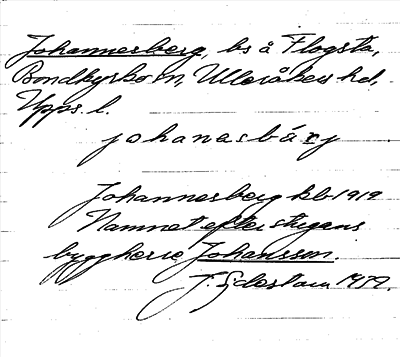 Johannesberg, bs å Flogsta,
Bondkyrko sn, Ulleråkers hd,
Upps. l.
johanasbárj
Johannesberg kb 1919
Namnet efter stugans
byggherre Johansson.
J. Sjöstam 1939.